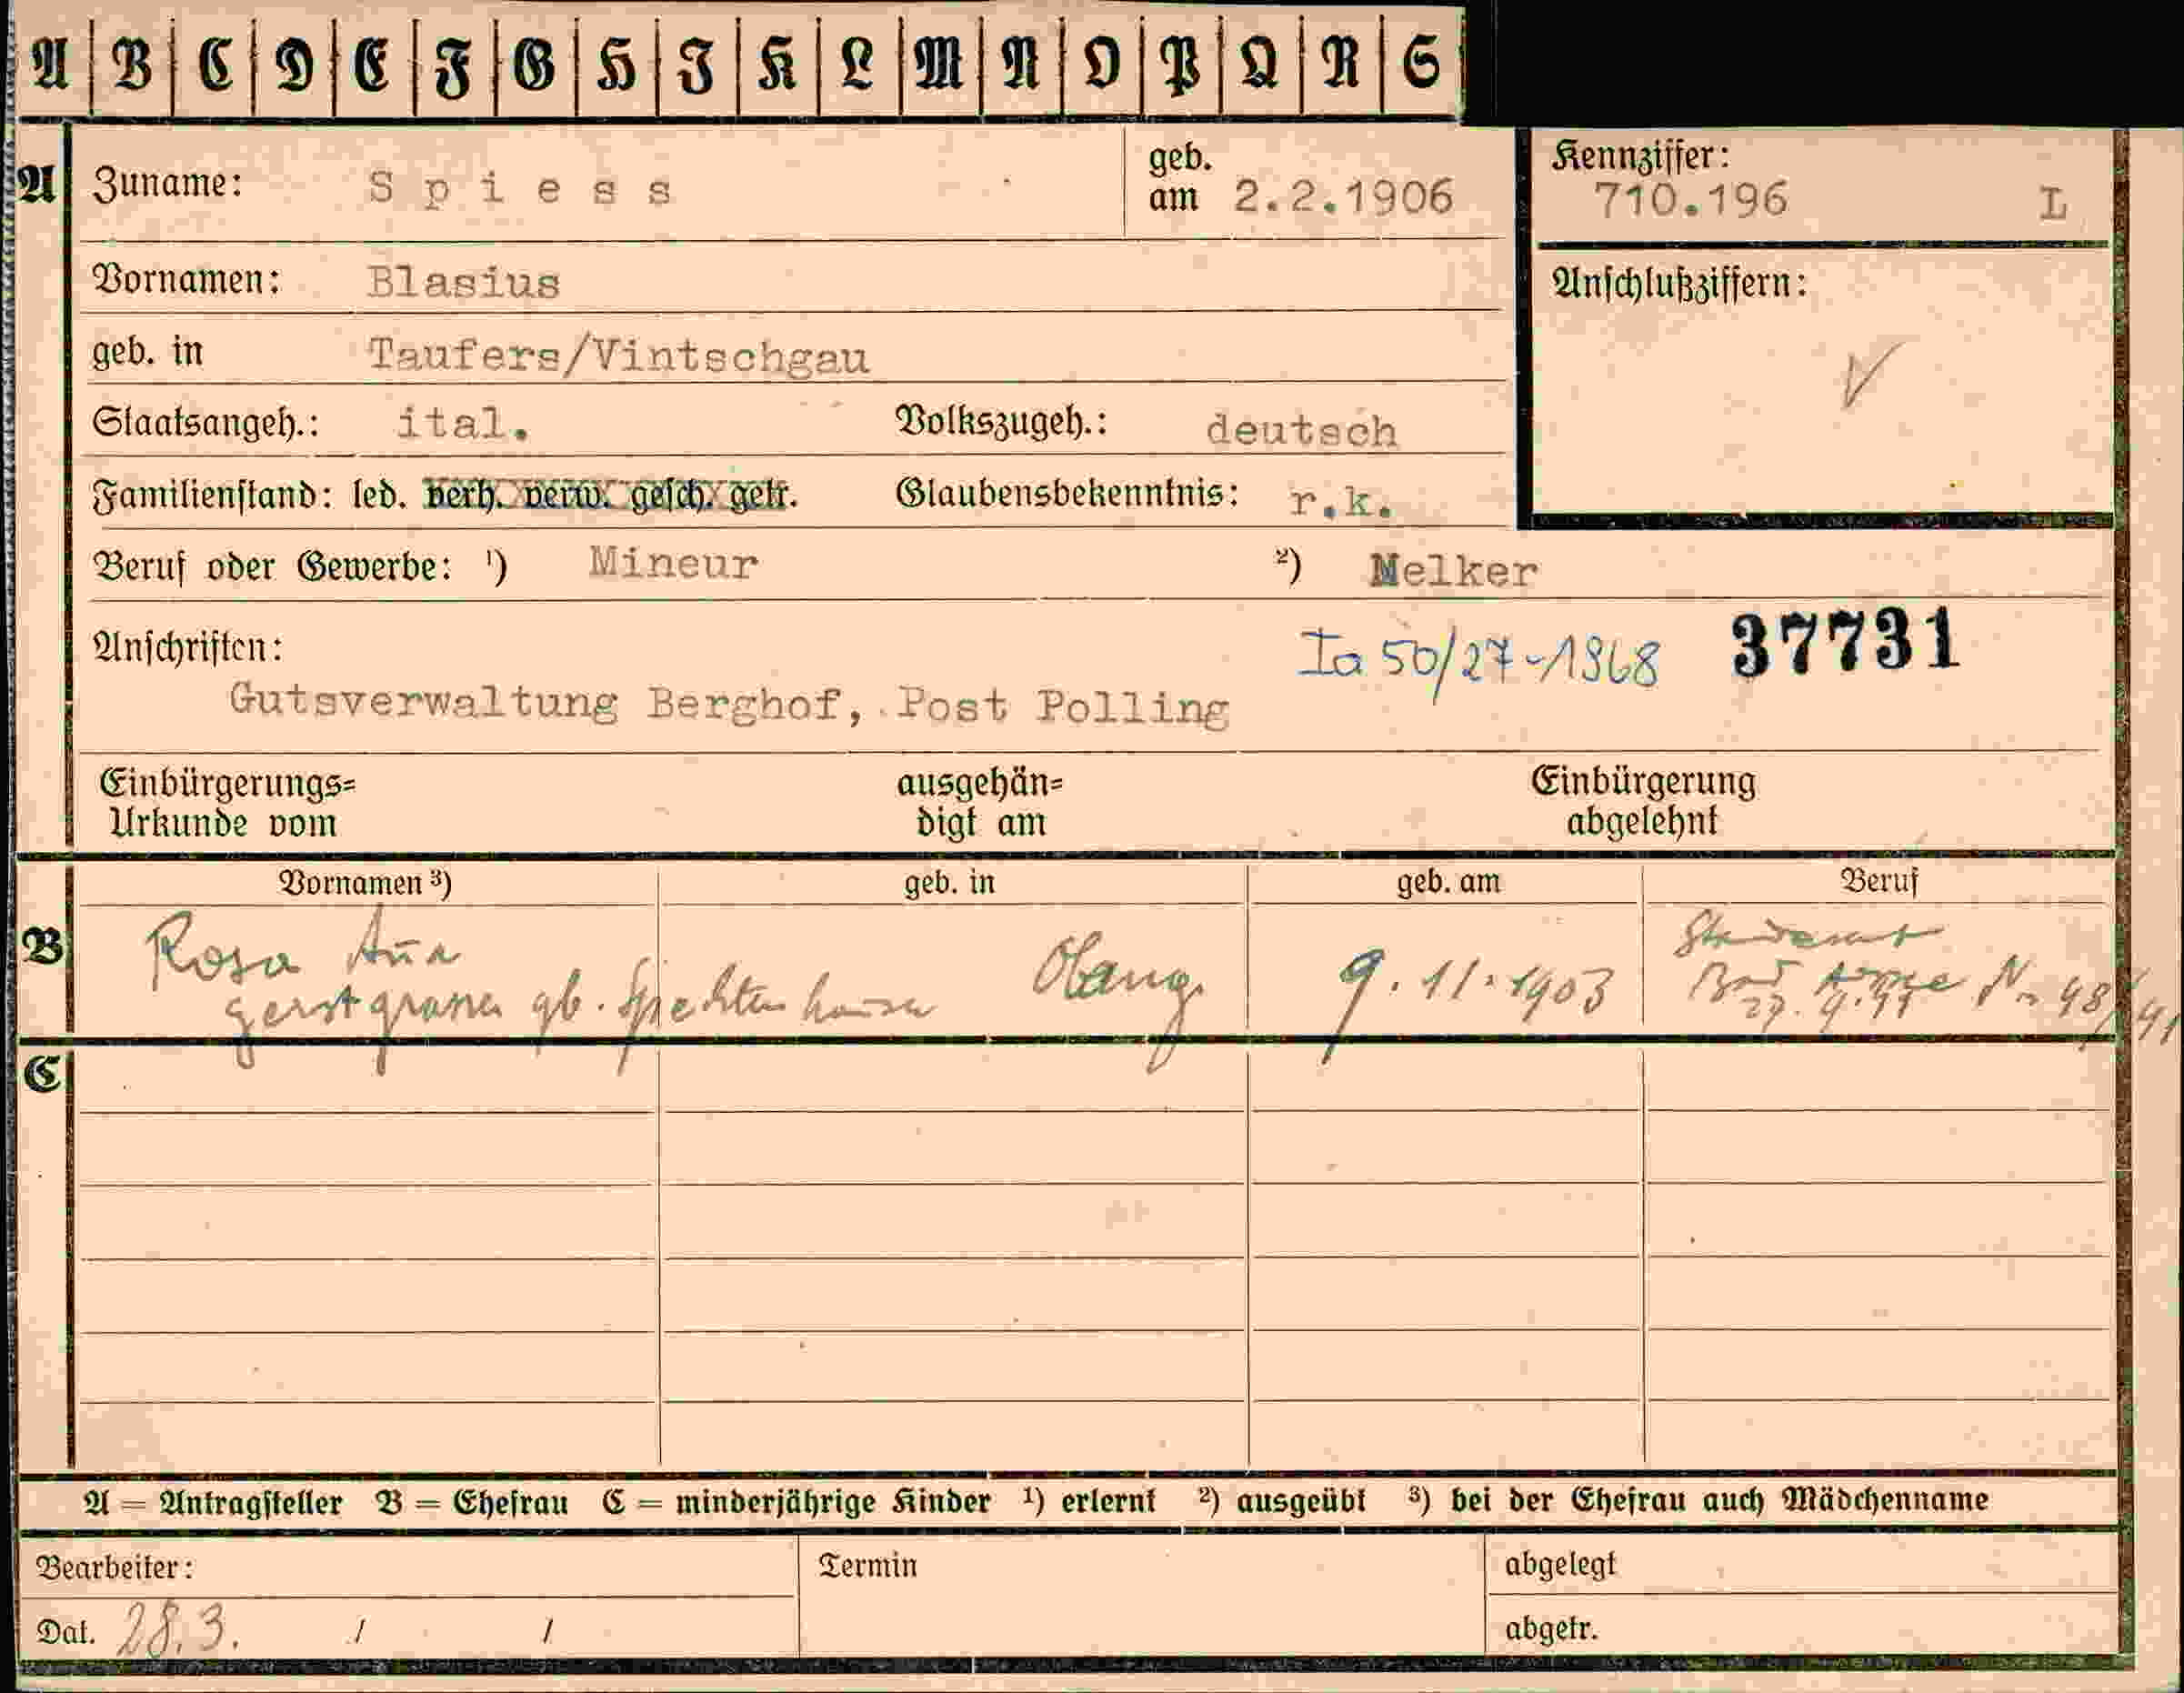 A B C D E F G H I K L M N O P Q R S
A Zuname: Spiess geb. am 2.2.1906
Kennziffer: 710.196 L
Vornamen: Blasius
Anschlußziffern:
geb. in Taufers/Vintschgau
Staatsangeh.: ital. Volkszugeh.: deutsch
Familienstand: led. verh. verw. gesch. getr. Glaubensbekenntnis: r.k.
Beruf oder Gewerbe: ¹) Mineur ²) Melker
Anschriften: Ia 50/27-1368 37731
Gutsverwaltung Berghof, Post Polling
Einbürgerungs= ausgehän= Einbürgerung
Urkunde vom digt am abgelehnt
Vornamen ³) geb. in geb. am Beruf
B Rosa Olang 9.11.1903
gb. Nr 48/41
C
A = Antragsteller B = Ehefrau C = minderjährige Kinder ¹) erlernt ²) ausgeübt ³) bei der Ehefrau auch Mädchenname
Bearbeiter: Termin abgelegt
Dat. 28.3. / / abgetr.